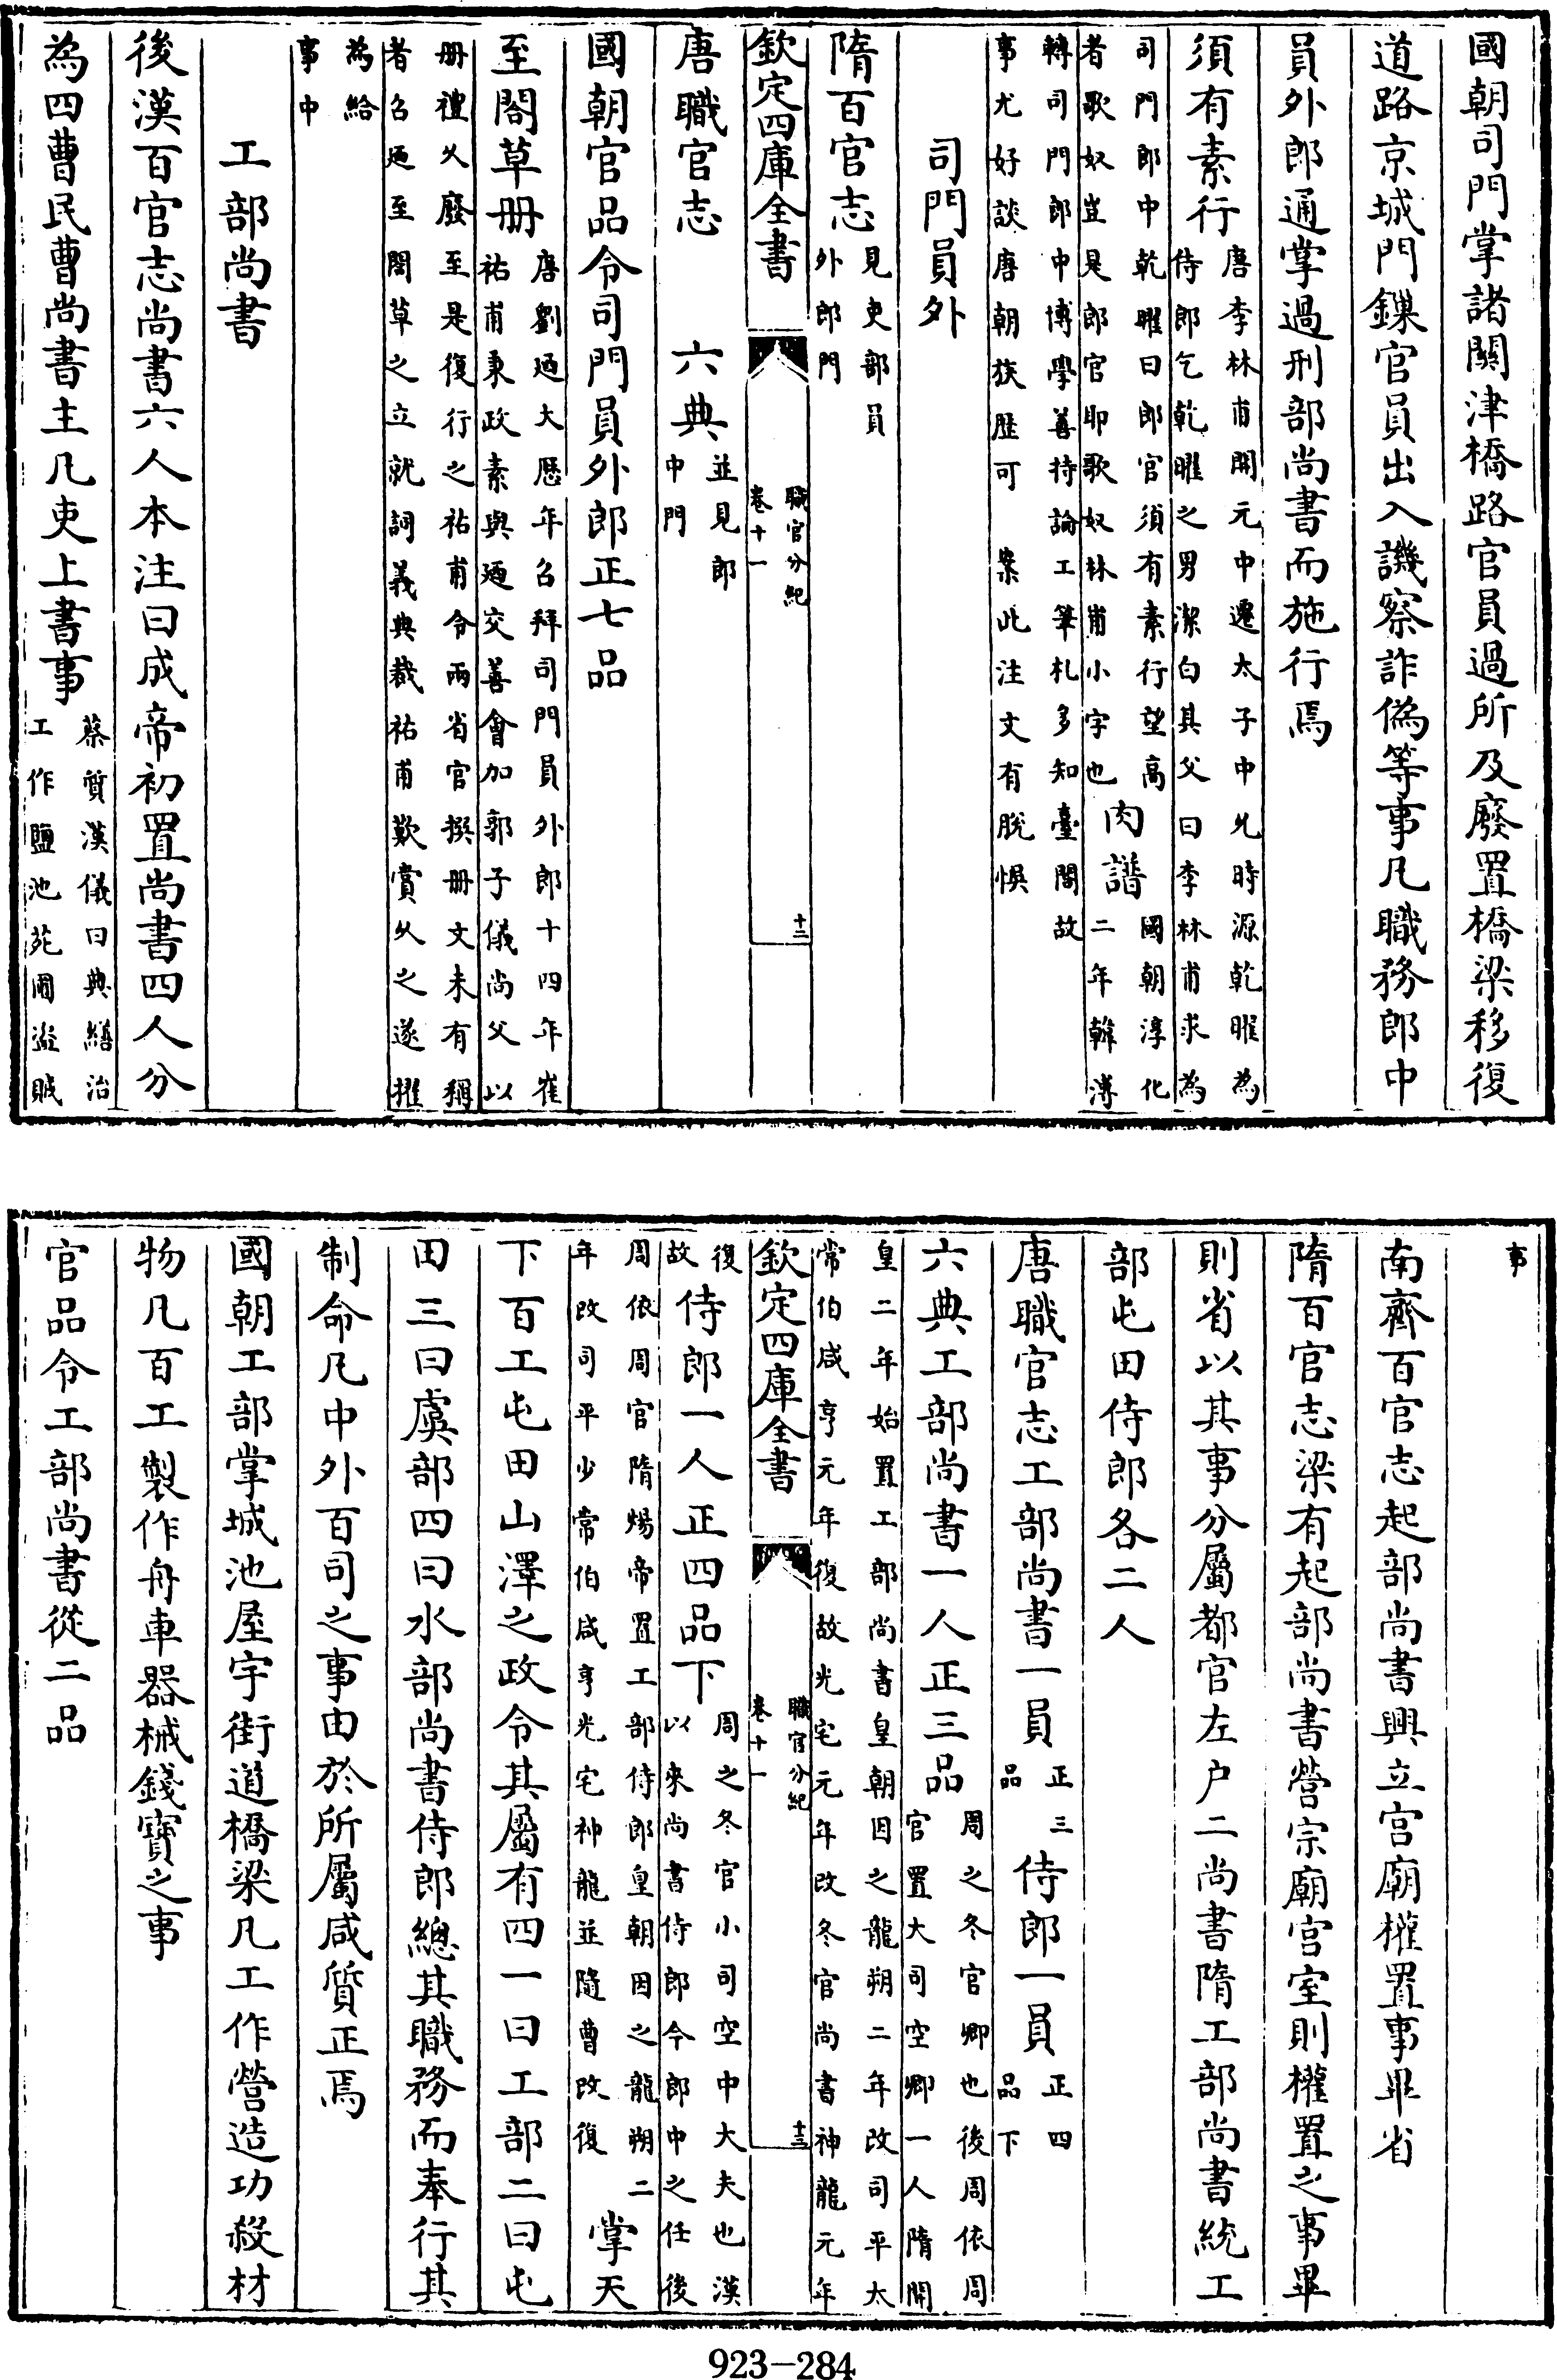 國朝司門掌諸關津橋路官員過所及廢置橋梁移復
道路京城門鏁官員出入譏察詐偽等事凡職務郎中
員外郎通掌過刑部尚書而施行焉
須有素行唐李林甫開元中遷太子中允時源乾曜為
侍郎乞乾曜之男潔白其父曰李林甫求為
司門郎中乾曜曰郎官須有素行望高
者歌奴豈是郎官耶歌奴林甫小字也肉譜國朝淳化
二年韓溥
轉司門郎中博學善持論工筆札多知臺閣故
事尤好談唐朝族歴可 案此注文有脫悞
司門員外
隋百官志見吏部員
外郎門
欽定四庫全書 職官分紀
卷十一 十二
唐職官志 六典並見郎
中門
國朝官品令司門員外郎正七品
至閣草册唐劉廼大厯年召拜司門員外郎十四年崔
祐甫秉政素與廼交善會加郭子儀尚父以
册禮久廢至是復行之祐甫令兩省官撰册文未有稱
者召廼至閣草之立就詞義典裁祐甫歎賞久之遂擢
為給
事中
工部尚書
後漢百官志尚書六人本注曰成帝初置尚書四人分
為四曹民曹尚書主凡吏上書事蔡質漢儀曰典繕治
工作鹽池苑囿盜賊
事
南齊百官志起部尚書興立宫廟權置事畢省
隋百官志梁有起部尚書營宗廟宫室則權置之事畢
則省以其事分屬都官左户二尚書隋工部尚書統工
部屯田侍郎各二人
唐職官志工部尚書一員正三
品侍郎一員正四
品下
六典工部尚書一人正三品周之冬官卿也後周依周
官置大司空卿一人隋開
皇二年始置工部尚書皇朝因之龍朔二年改司平太
常伯咸亨元年復故光宅元年改冬官尚書神龍元年
欽定四庫全書 職官分紀
卷十一 十三
復
故侍郎一人正四品下周之冬官小司空中大夫也漢
以來尚書侍郎今郎中之任後
周依周官隋煬帝置工部侍郎皇朝因之龍朔二
年改司平少常伯咸亨光宅神龍並隨曹改復掌天
下百工屯田山澤之政令其屬有四一曰工部二曰屯
田三曰虞部四曰水部尚書侍郎總其職務而奉行其
制命凡中外百司之事由於所屬咸質正焉
國朝工部掌城池屋宇街道橋梁凡工作營造功殺材
物凡百工製作舟車器械錢寶之事
官品令工部尚書從二品
923-284